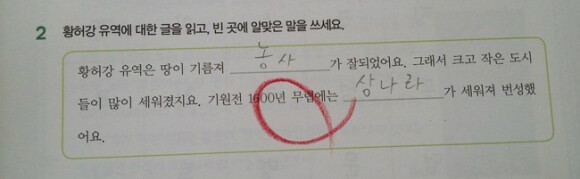 2 황허강 유역에 대한 글을 읽고, 빈 곳에 알맞은 말을 쓰세요.
황허강 유역은 땅이 기름져 농사가 잘되었어요. 그래서 크고 작은 도시
들이 많이 세워졌지요. 기원전 1600년 무렵에는 상나라가 세워져 번성했
어요.